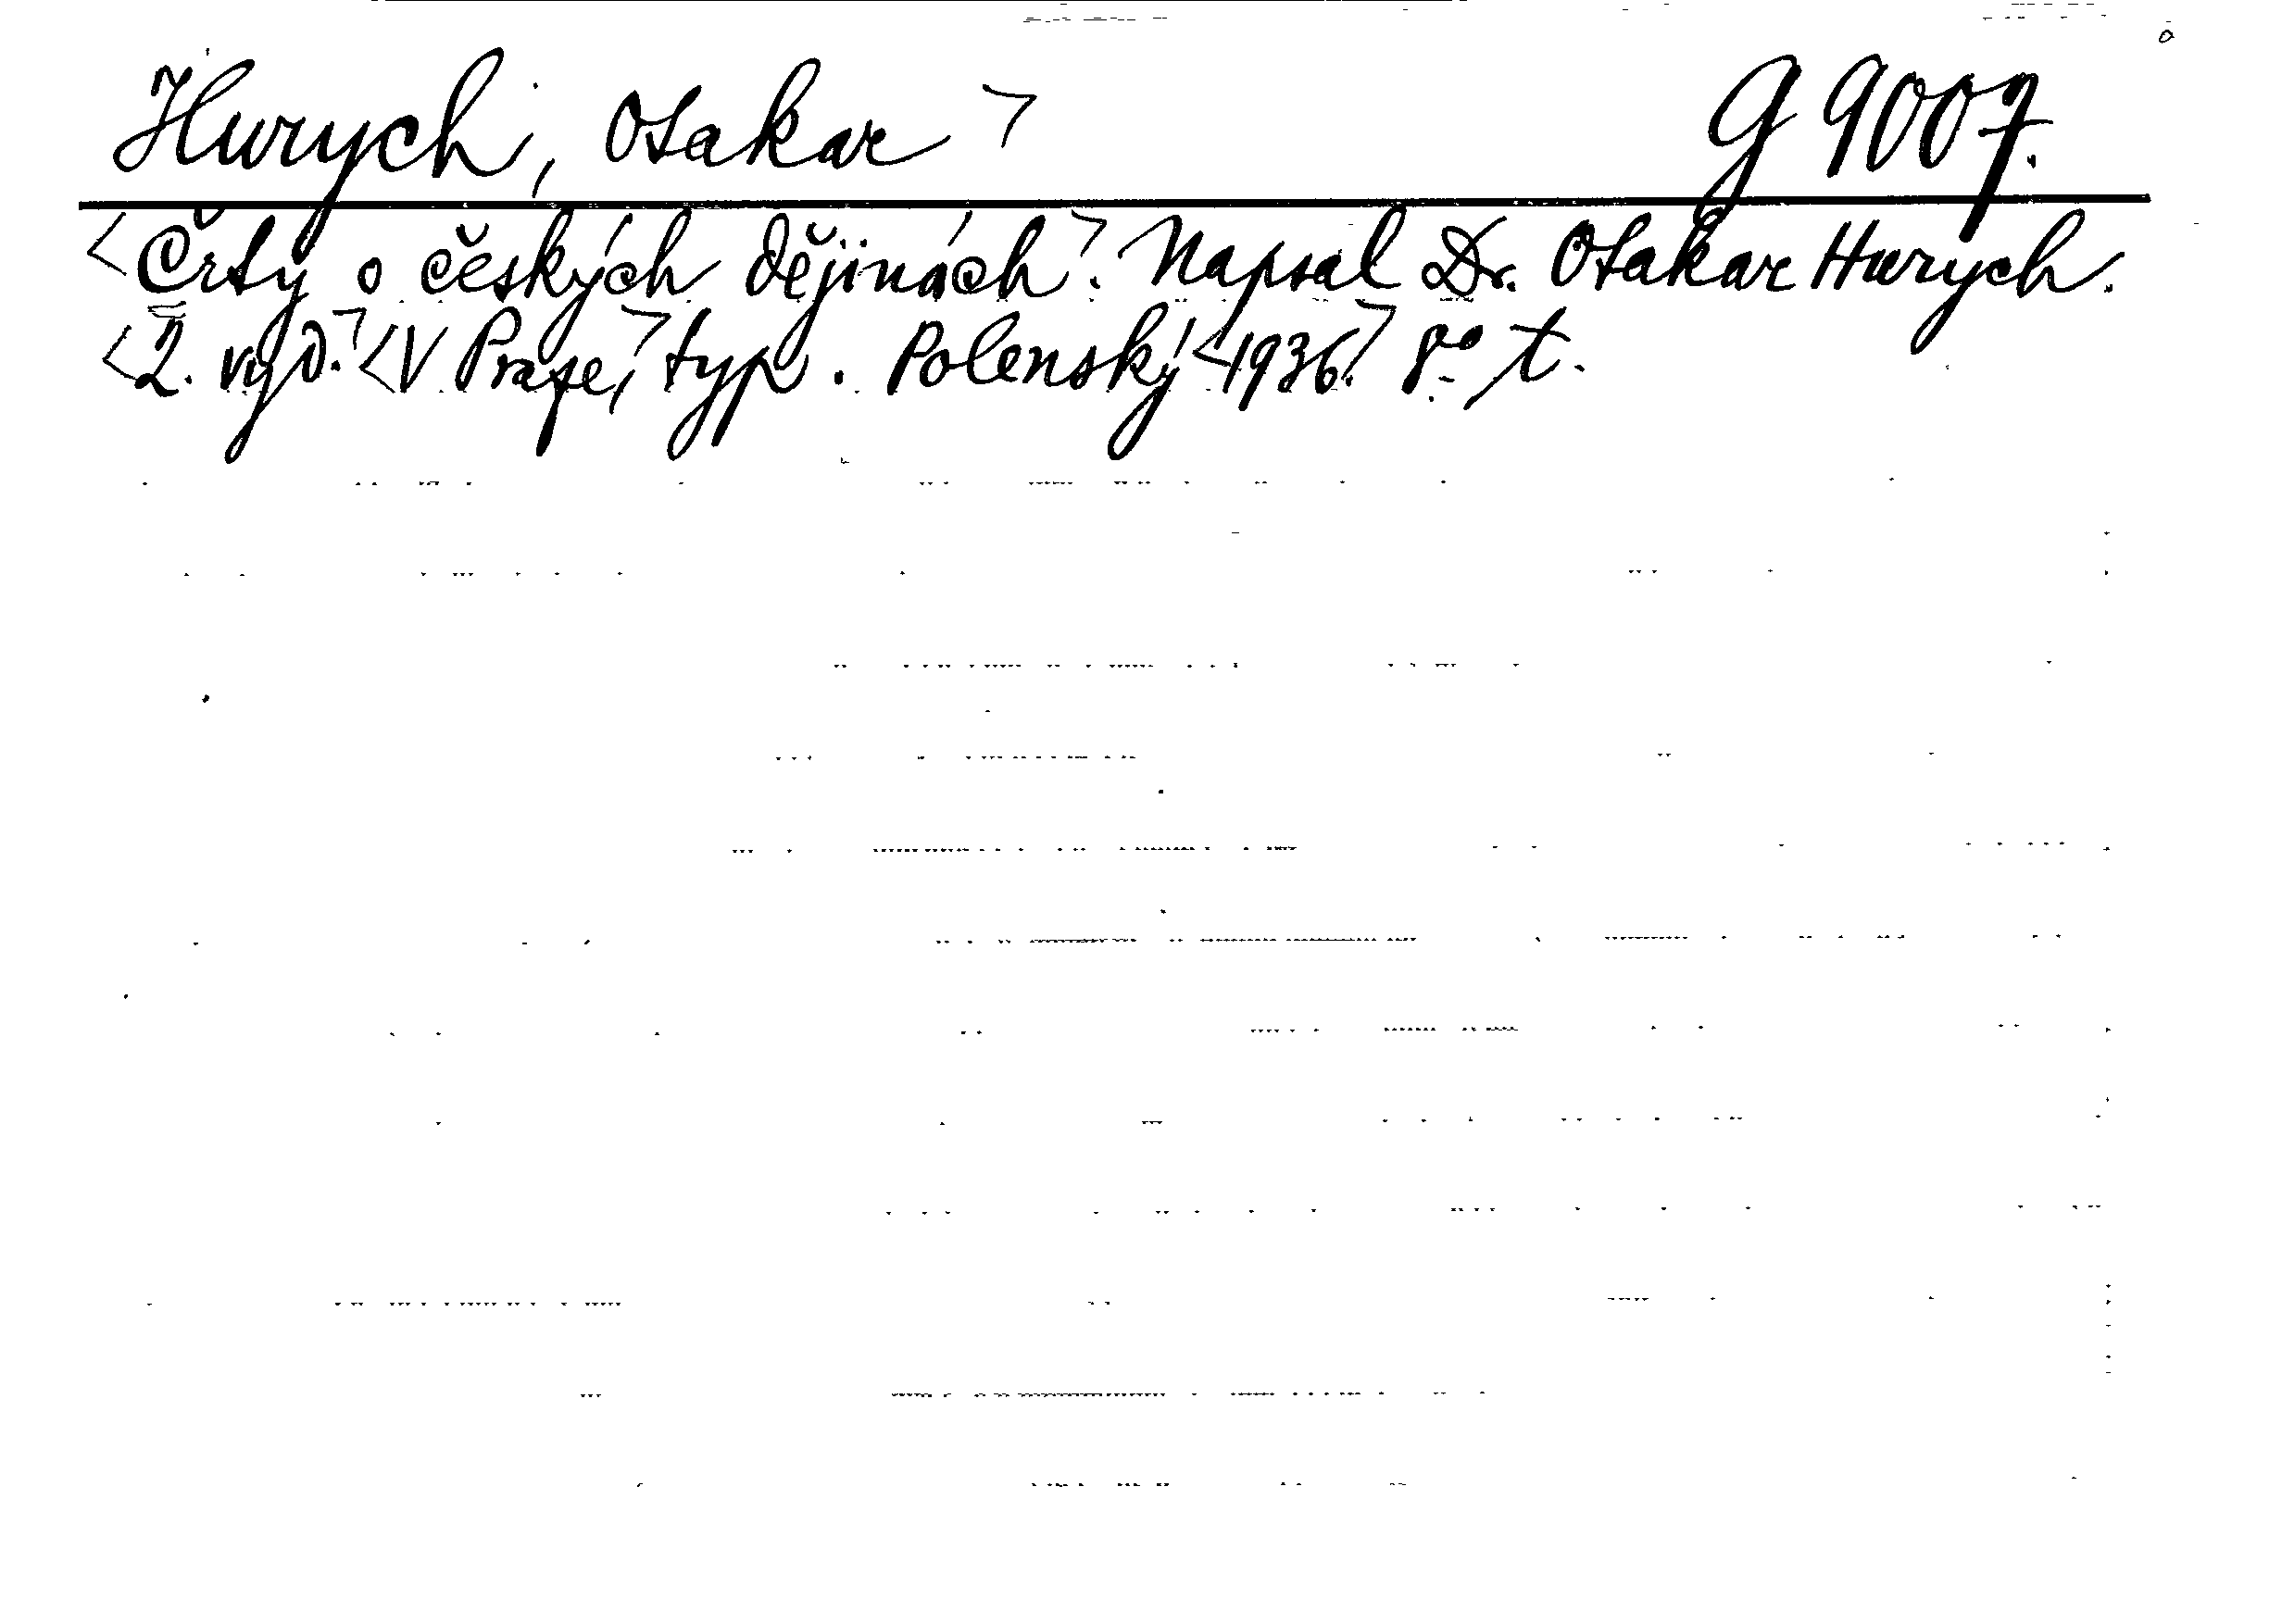 Hurych, Otakar ㄱ G 9007.
<Črty o českých dějinách.ㄱ Napsal Dr. Otakar Hurych.
<2. vyd.ㄱ <V Praze,ㄱ typ. Polenský <1936.ㄱ 8° t.